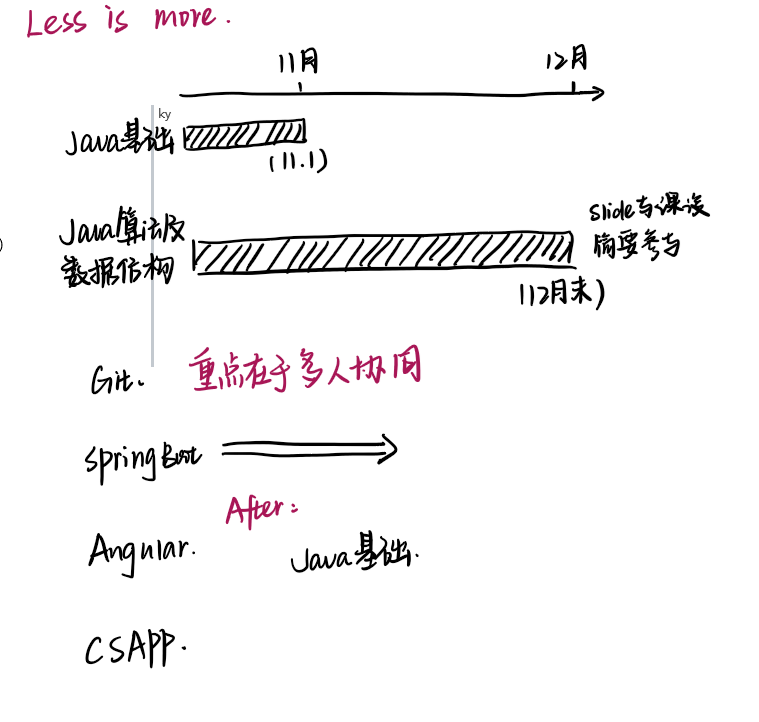 Less is more.
11月
12月
ky
Java基础
(11.1)
Java算法及
数据结构
slide与课设
简要参与
(12月末)
Git.
重点在于多人协同
SpringBoot
After:
Angular.
Java基础.
CSAPP.